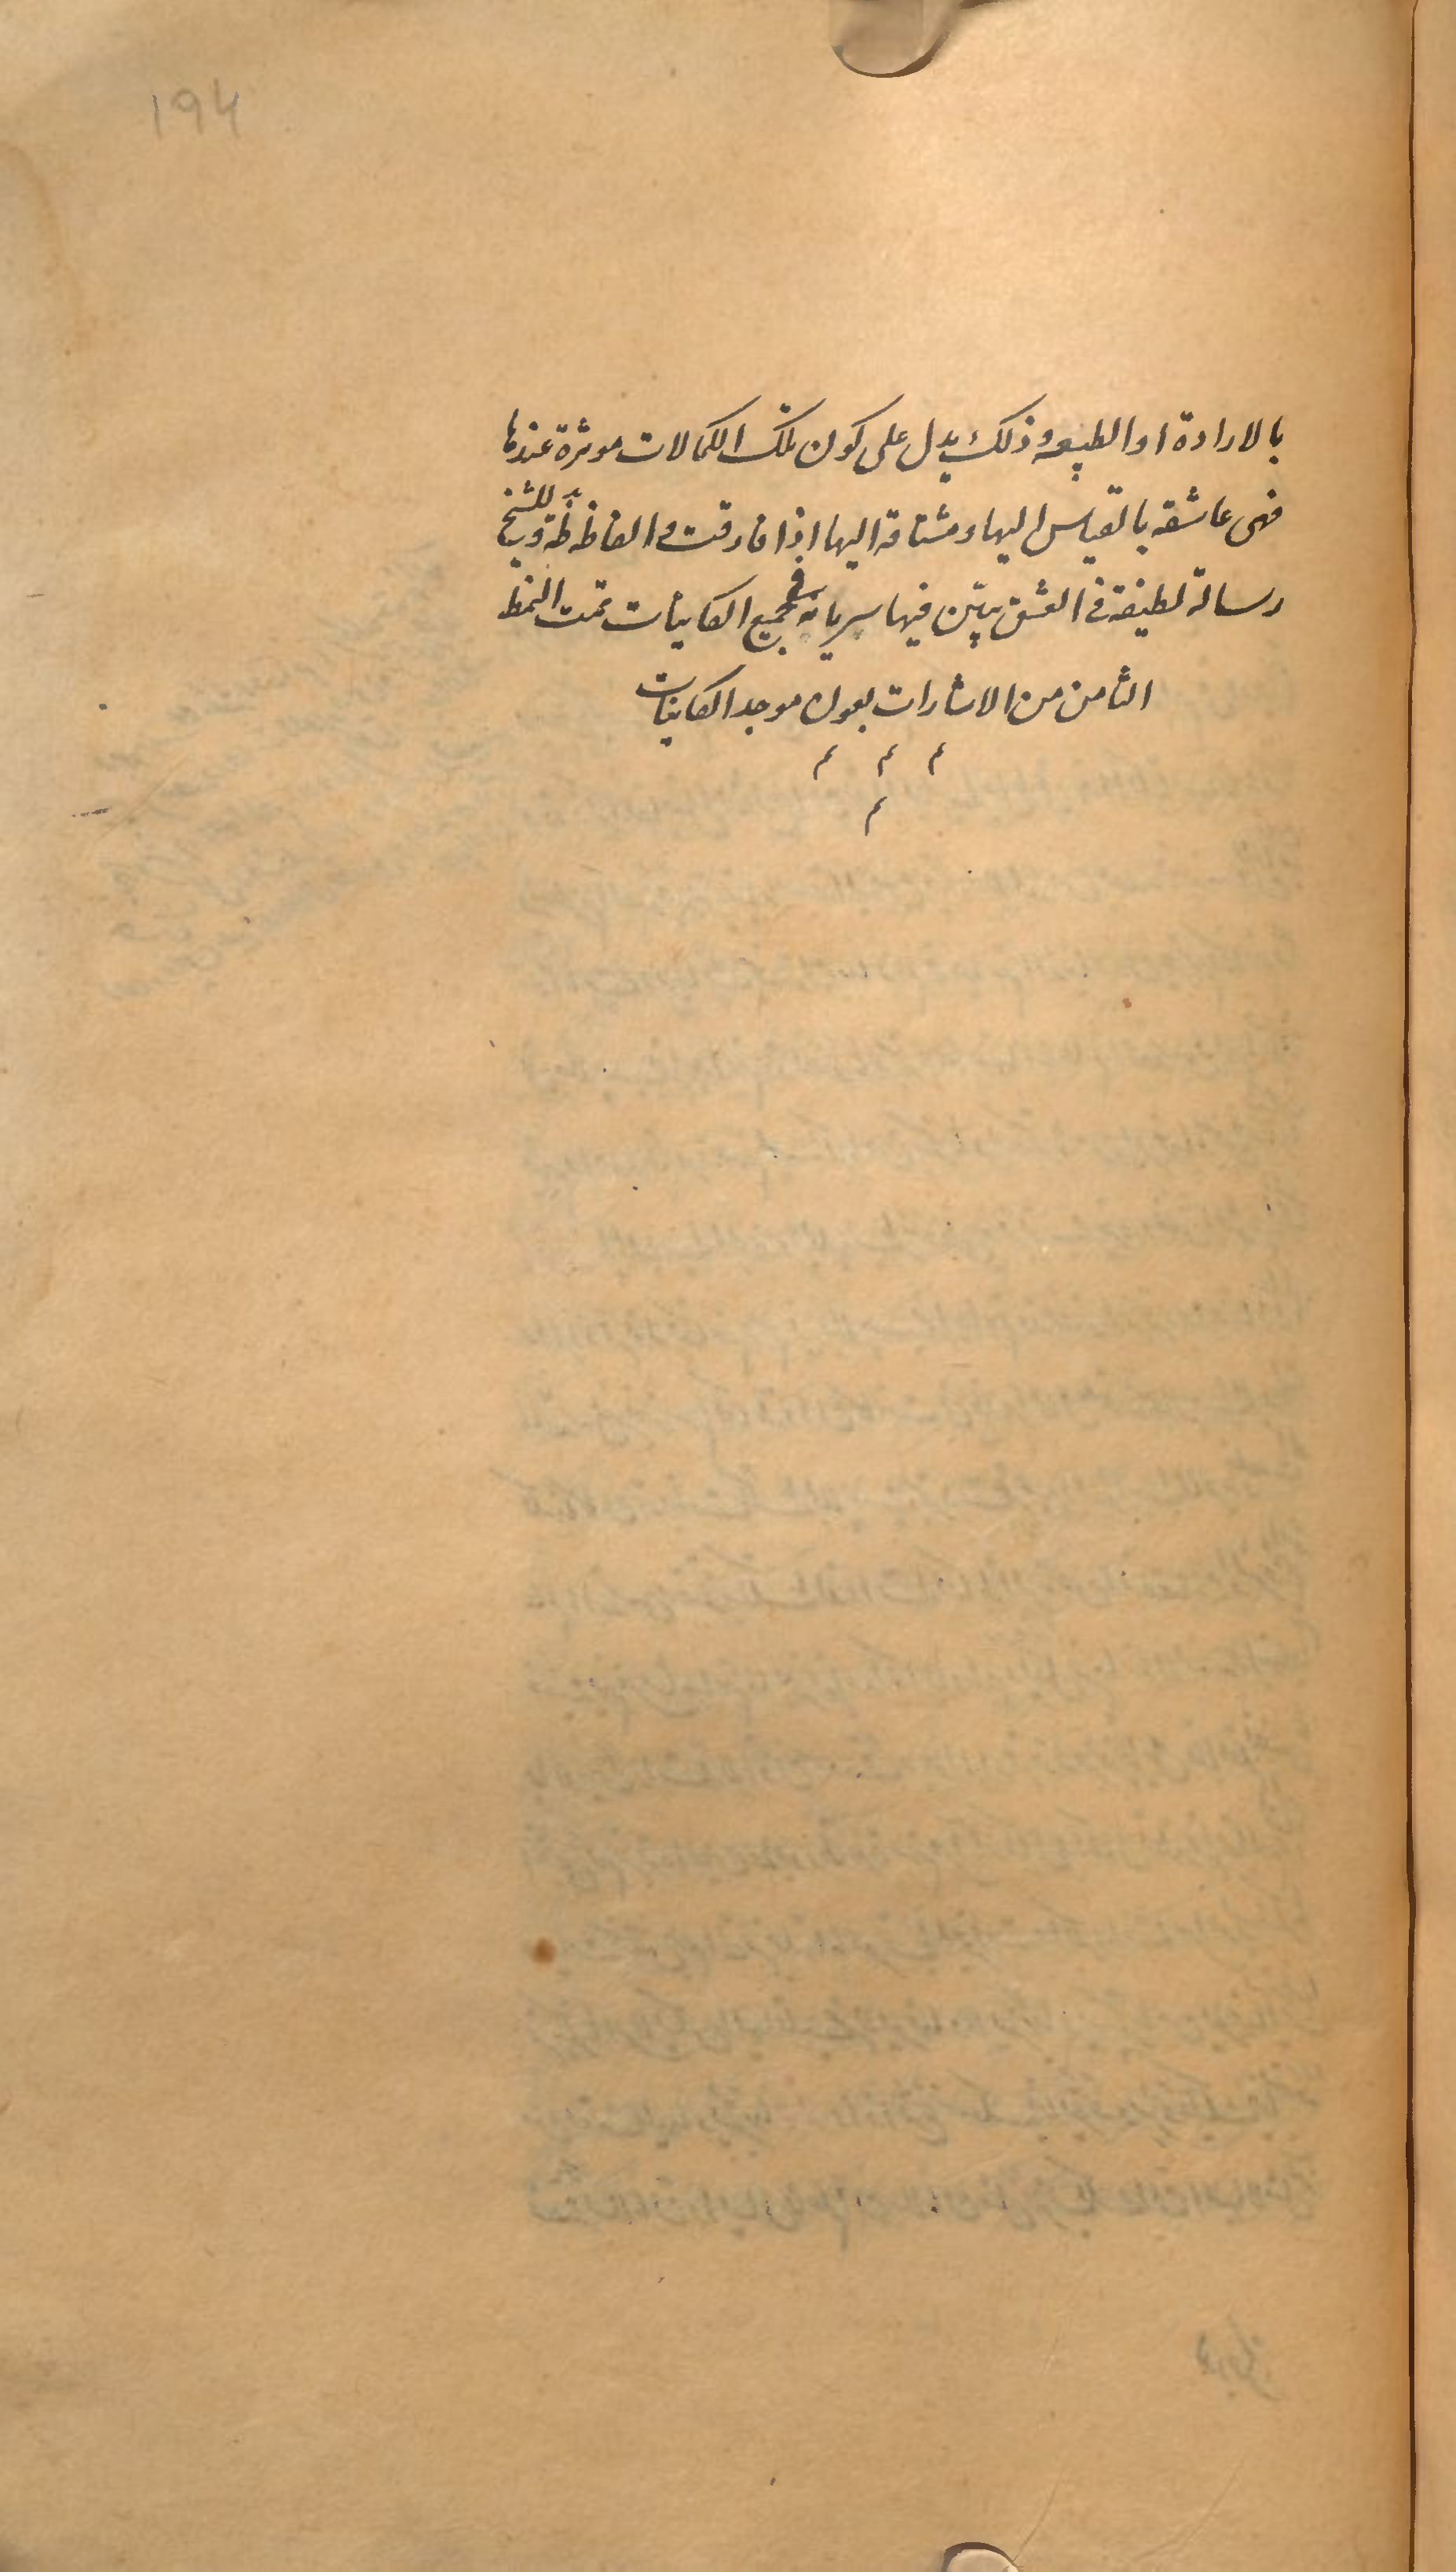 ۱۹۴
بالارادة او الطبیعه وذلک یدل علی کون تلک الکمالات موثرة عندها
فهی عاشقه بالقیاس الیها و مشتاقه الیها اذا فارقت والفاظه ظ وللشیخ
رسالة لطیفة فی العشق بیّن فیها سریانه فی جمیع الکاینات تمت النمط
الثامن من الاشارات بعون موجد الکاینات
م م م
م